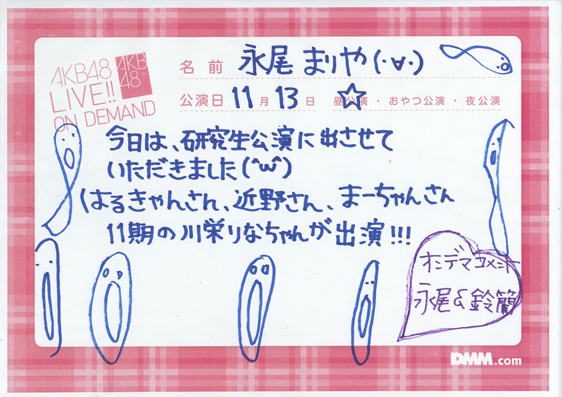 AKB48
LIVE!!
ON DEMAND
AKB
48
名前 永尾 まりや(・∀・)
公演日 11月13日 昼公演・おやつ公演・夜公演
今日は、研究生公演に出させて
いただきました(^ω^)
はるきゃんさん、近野さん、まーちゃんさん
11期の川栄りなちゃんが出演!!!
オンデマコメント
永尾&鈴蘭
DMM.com